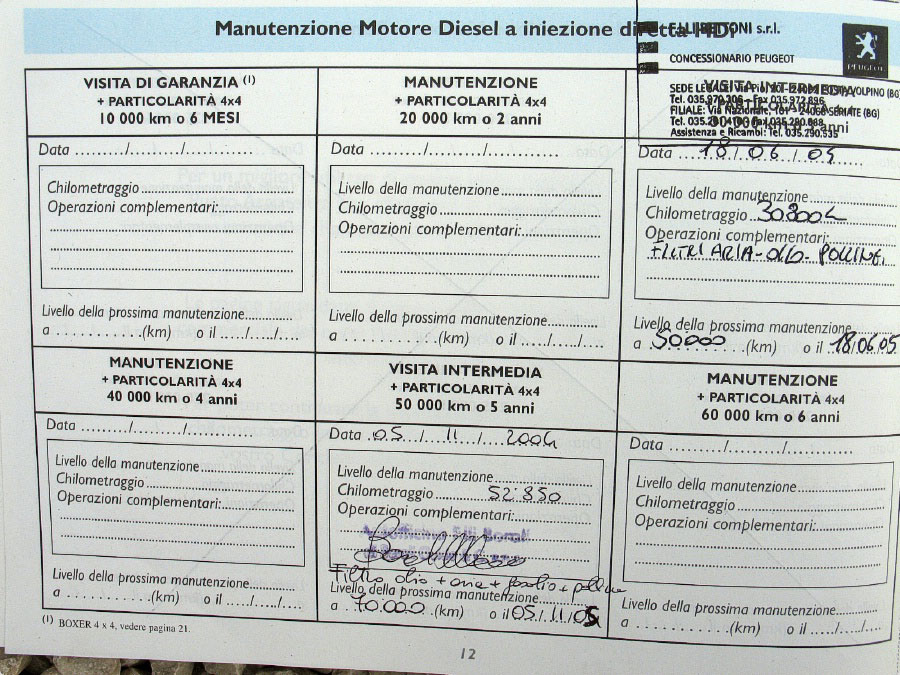 Manutenzione Motore Diesel a iniezione diretta HDi
F.LLI BETTONI s.r.l.
CONCESSIONARIO PEUGEOT
PEUGEOT
SEDE LEGALE: Via Pio
VOLPINO (BG)
Tel. 035.970.206 - Fax 035.972.896
FILIALE: Via Nazionale, 101 - 24068 SERIATE (BG)
Assistenza e Ricambi: Tel. 035.290.535
VISITA DI GARANZIA (1)
+ PARTICOLARITÀ 4x4
10 000 km o 6 MESI
Data ......../........./...............
Chilometraggio
Operazioni complementari:
Livello della prossima manutenzione
a ..........(km) o il ..../..../....
MANUTENZIONE
+ PARTICOLARITÀ 4x4
20 000 km o 2 anni
Data ......../........./...............
Livello della manutenzione
Chilometraggio
Operazioni complementari:
Livello della prossima manutenzione
a ..........(km) o il ..../..../....
VISITA INTERMEDIA
+ PARTICOLARITÀ 4x4
30 000 km o 3 anni
Data 18/06/04
Livello della manutenzione
Chilometraggio 30800
Operazioni complementari:
FILTRI ARIA-OLIO-POLLINE.
Livello della prossima manutenzione
a 50000 (km) o il 18.06.05
MANUTENZIONE
+ PARTICOLARITÀ 4x4
40 000 km o 4 anni
Data ......../........./...............
Livello della manutenzione
Chilometraggio
Operazioni complementari:
Livello della prossima manutenzione
a ..........(km) o il ..../..../....
VISITA INTERMEDIA
+ PARTICOLARITÀ 4x4
50 000 km o 5 anni
Data 05/11/2004
Livello della manutenzione
Chilometraggio 52'850
Operazioni complementari:
Filtro olio + aria + gasolio + polline
Livello della prossima manutenzione
a 70.000 (km) o il 05/11/05
MANUTENZIONE
+ PARTICOLARITÀ 4x4
60 000 km o 6 anni
Data ......../........./...............
Livello della manutenzione
Chilometraggio
Operazioni complementari:
Livello della prossima manutenzione
a ..........(km) o il ..../..../....
(1) BOXER 4 x 4, vedere pagina 21.
12